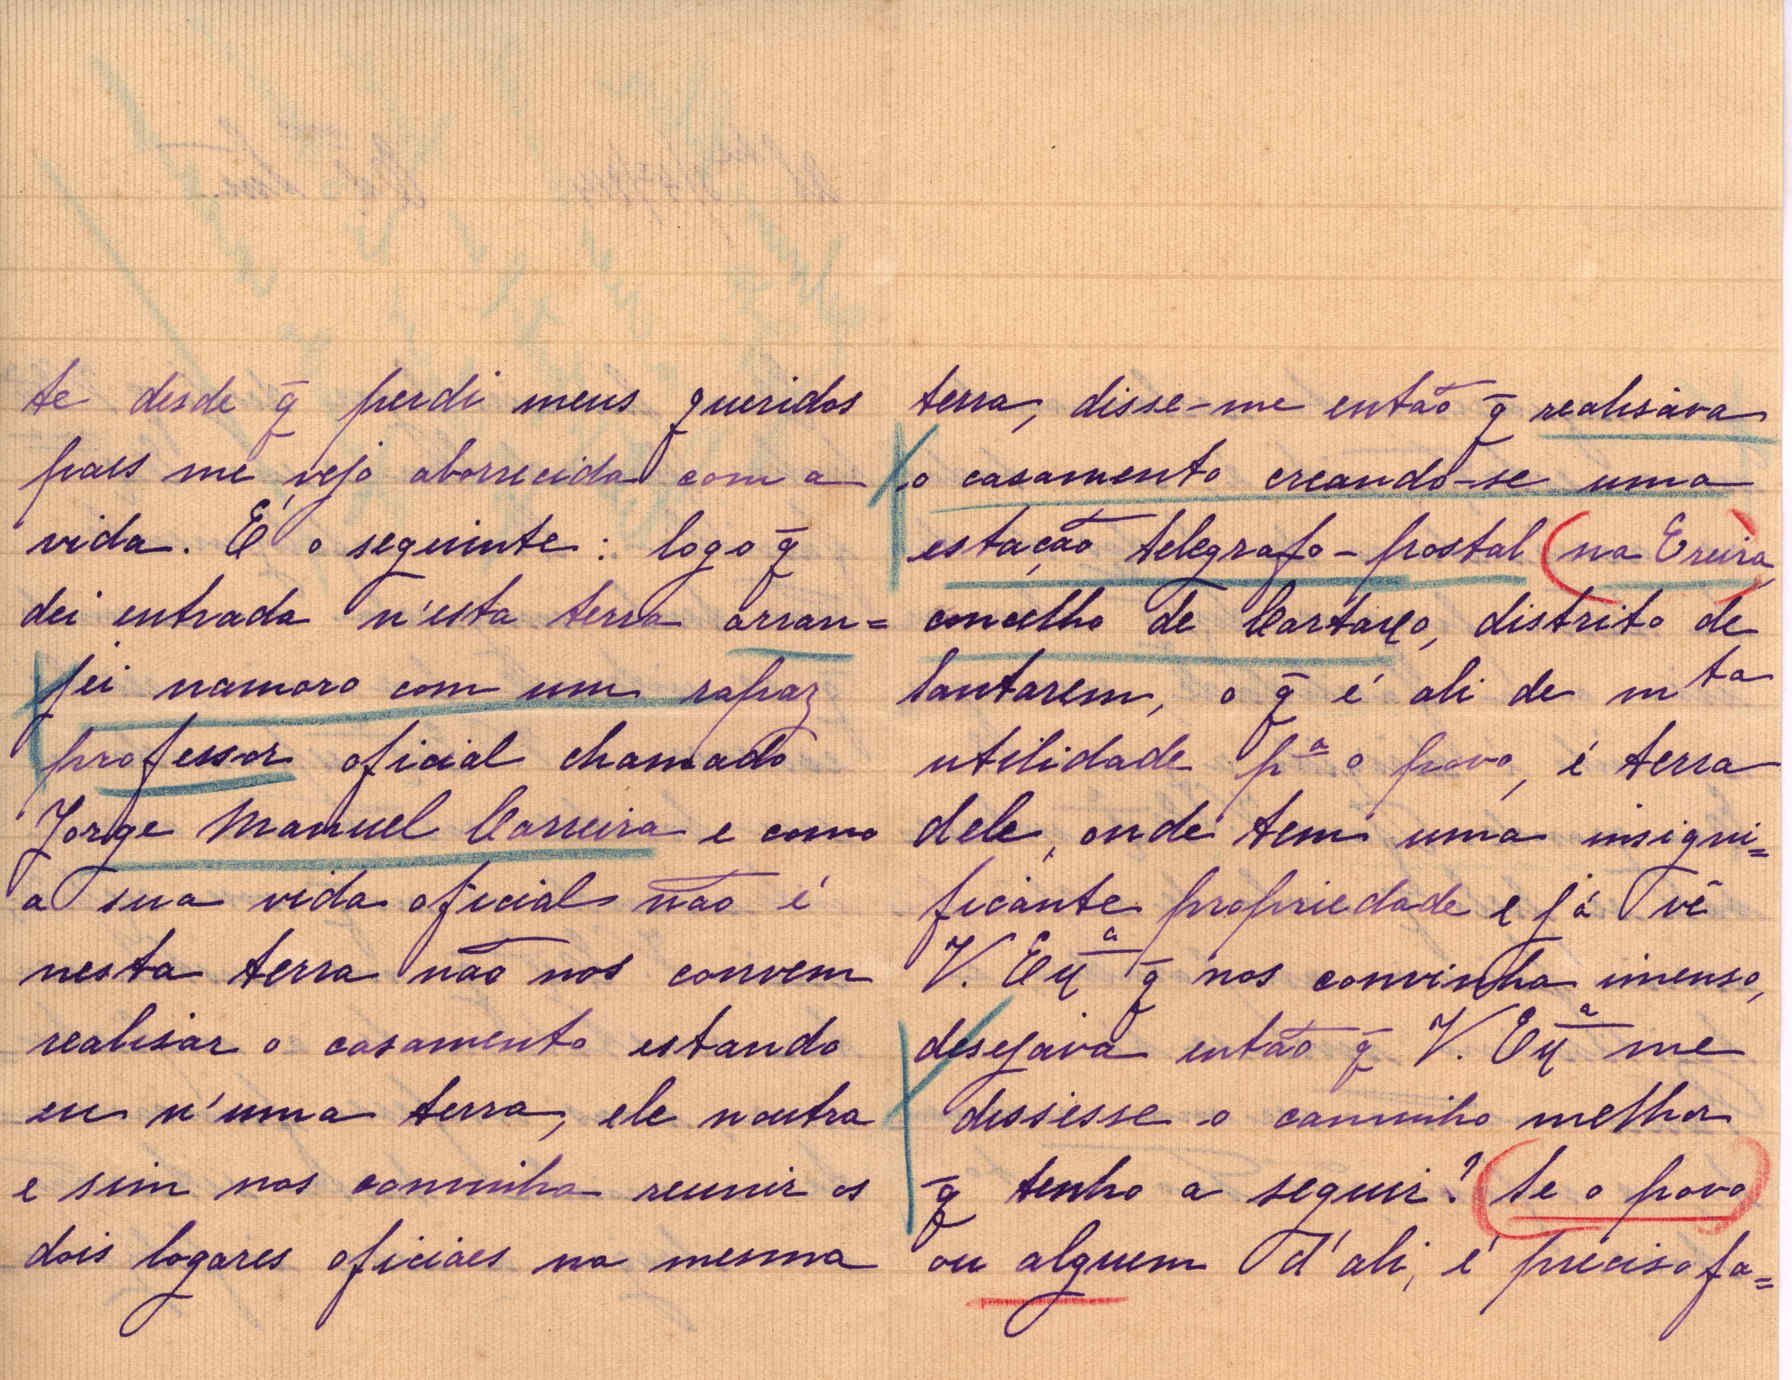 te desde q̄ perdi meus queridos
pais me vejo aborrecida com a
vida. É o seguinte: logo q̄
dei entrada n'esta terra arran=
jei namoro com um rapaz
professor oficial chamado
Jorge Manuel Carreira e como
a sua vida oficial não é
nesta terra não nos convem
realisar o casamento estando
eu n'uma terra, ele noutra
e sim nos convinha reunir os
dois logares oficiaes na mesma
terra, disse-me então q̄ realisava
o casamento creando-se uma
estação telegrafo-postal (na Ereira,)
concelho de Cartaxo, distrito de
Santarem, o q̄ é ali de mta
utilidade pª o povo, é terra
dele, onde tem uma insigni=
ficante propriedade e já vê
V. Exª q̄ nos convinha imenso,
desejava então q̄ V. Exª me
dissesse o caminho melhor
q̄ tenho a seguir? (Se o povo)
ou alguem d'ali, é preciso fa=